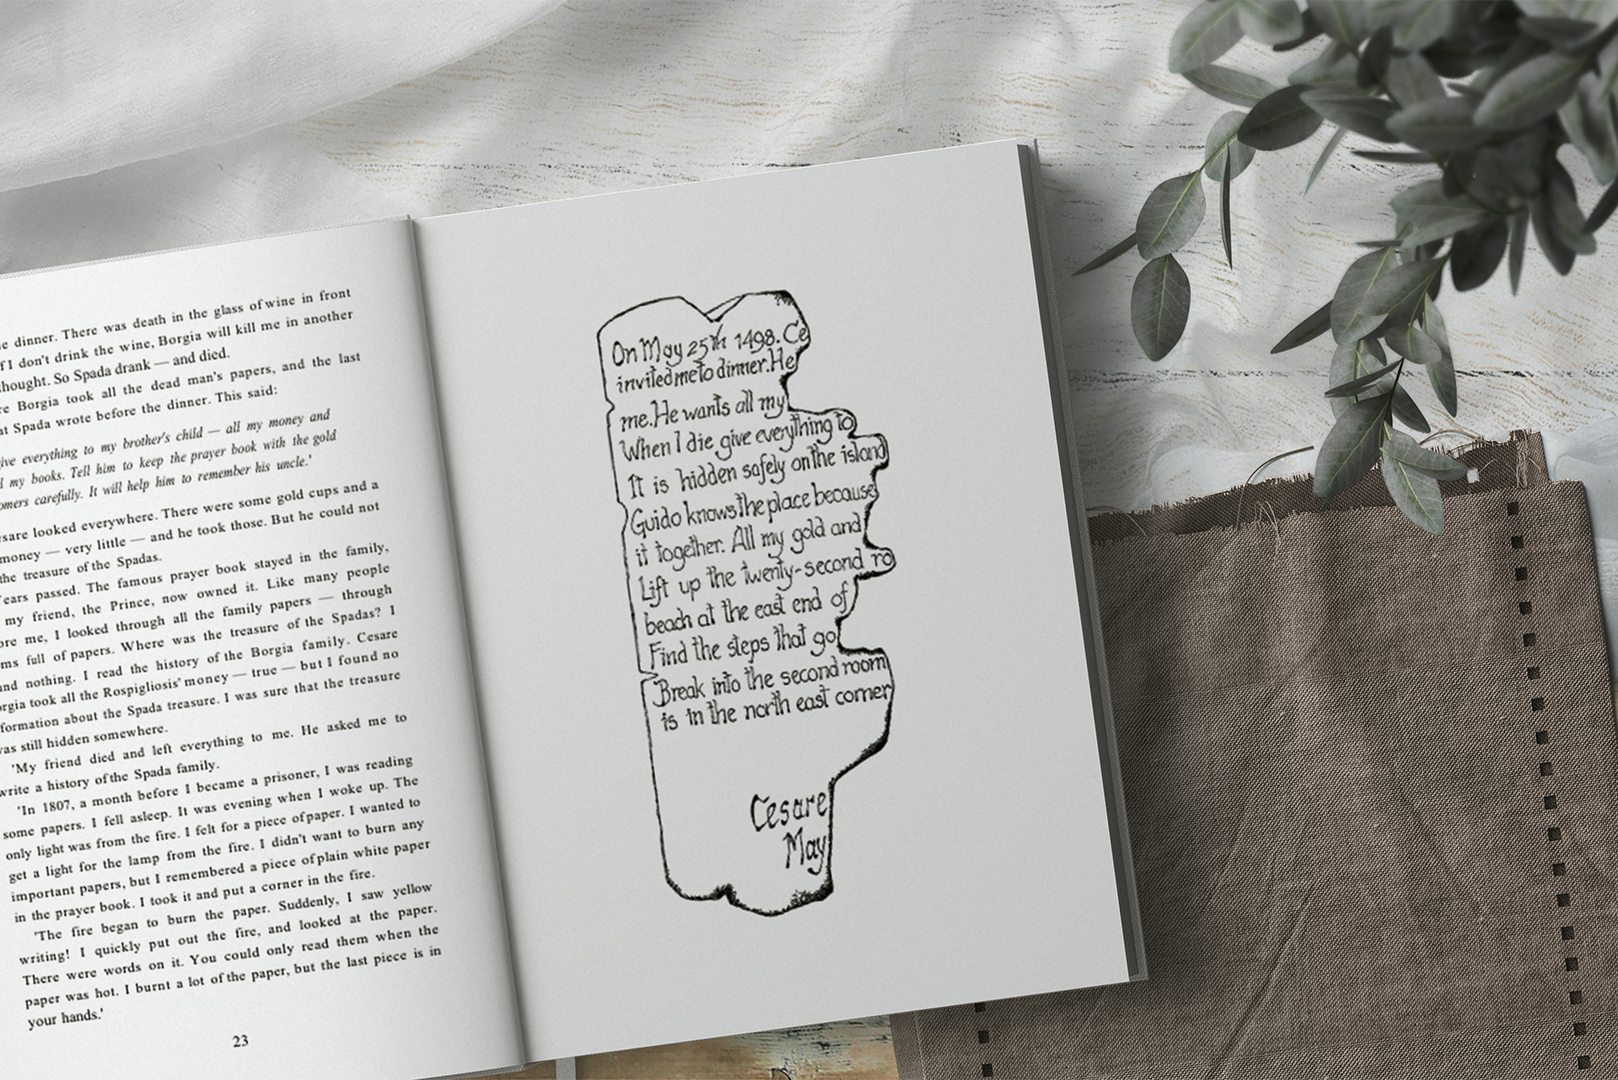 e dinner. There was death in the glass of wine in front
f I don't drink the wine, Borgia will kill me in another
hought. So Spada drank — and died.
re Borgia took all the dead man's papers, and the last
at Spada wrote before the dinner. This said:
ive everything to my brother's child — all my money and
l my books. Tell him to keep the prayer book with the gold
omers carefully. It will help him to remember his uncle.'
esare looked everywhere. There were some gold cups and a
money — very little — and he took those. But he could not
the treasure of the Spadas.
ears passed. The famous prayer book stayed in the family,
my friend, the Prince, now owned it. Like many people
ore me, I looked through all the family papers — through
ms full of papers. Where was the treasure of the Spadas? I
nd nothing. I read the history of the Borgia family. Cesare
orgia took all the Rospigliosis' money — true — but I found no
formation about the Spada treasure. I was sure that the treasure
vas still hidden somewhere.
'My friend died and left everything to me. He asked me to
write a history of the Spada family.
'In 1807, a month before I became a prisoner, I was reading
some papers. I fell asleep. It was evening when I woke up. The
only light was from the fire. I felt for a piece of paper. I wanted to
get a light for the lamp from the fire. I didn't want to burn any
important papers, but I remembered a piece of plain white paper
in the prayer book. I took it and put a corner in the fire.
'The fire began to burn the paper. Suddenly, I saw yellow
writing! I quickly put out the fire, and looked at the paper.
There were words on it. You could only read them when the
paper was hot. I burnt a lot of the paper, but the last piece is in
your hands.'
23
On May 25th 1498. Ce
invited me to dinner. He
me. He wants all my
When I die give everything to
It is hidden safely on the island
Guido knows the place because
it together. All my gold and
Lift up the twenty-second ro
beach at the east end of
Find the steps that go
Break into the second room
is in the north east corner
Cesare
May